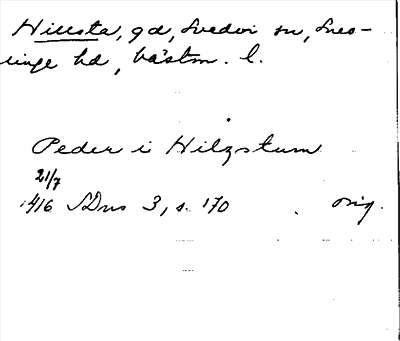 Hillsta, gd, Svedvi sn, Snev-
linge hd, Västm. l.
Peder i Hilzstum
21/7
1416 SDns 3, s. 170 orig.